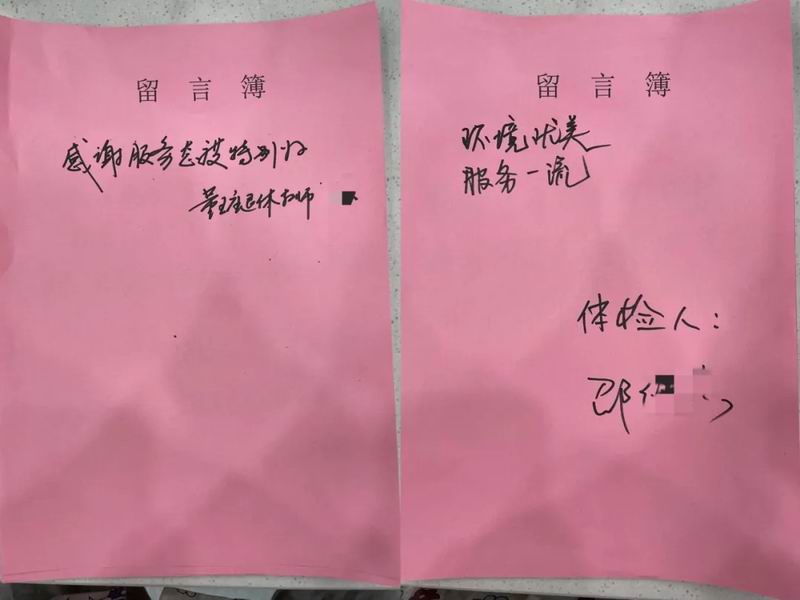 留言簿
感谢服务态度特别好
退休教师
留言簿
环境优美
服务一流
体检人：
邵